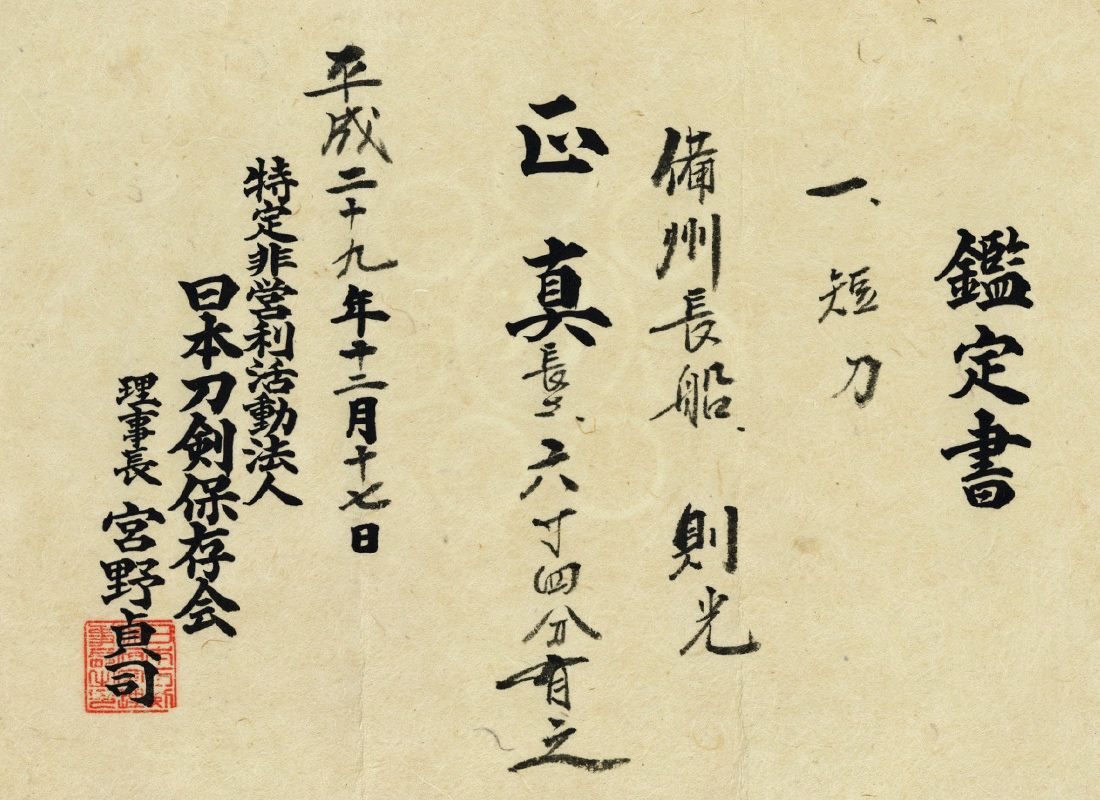 鑑定書
一、短刀
備州長船、則光
正真長サ、六寸四分有之
平成二十九年十二月十七日
特定非営利活動法人
日本刀剣保存会
理事長 宮野貞司